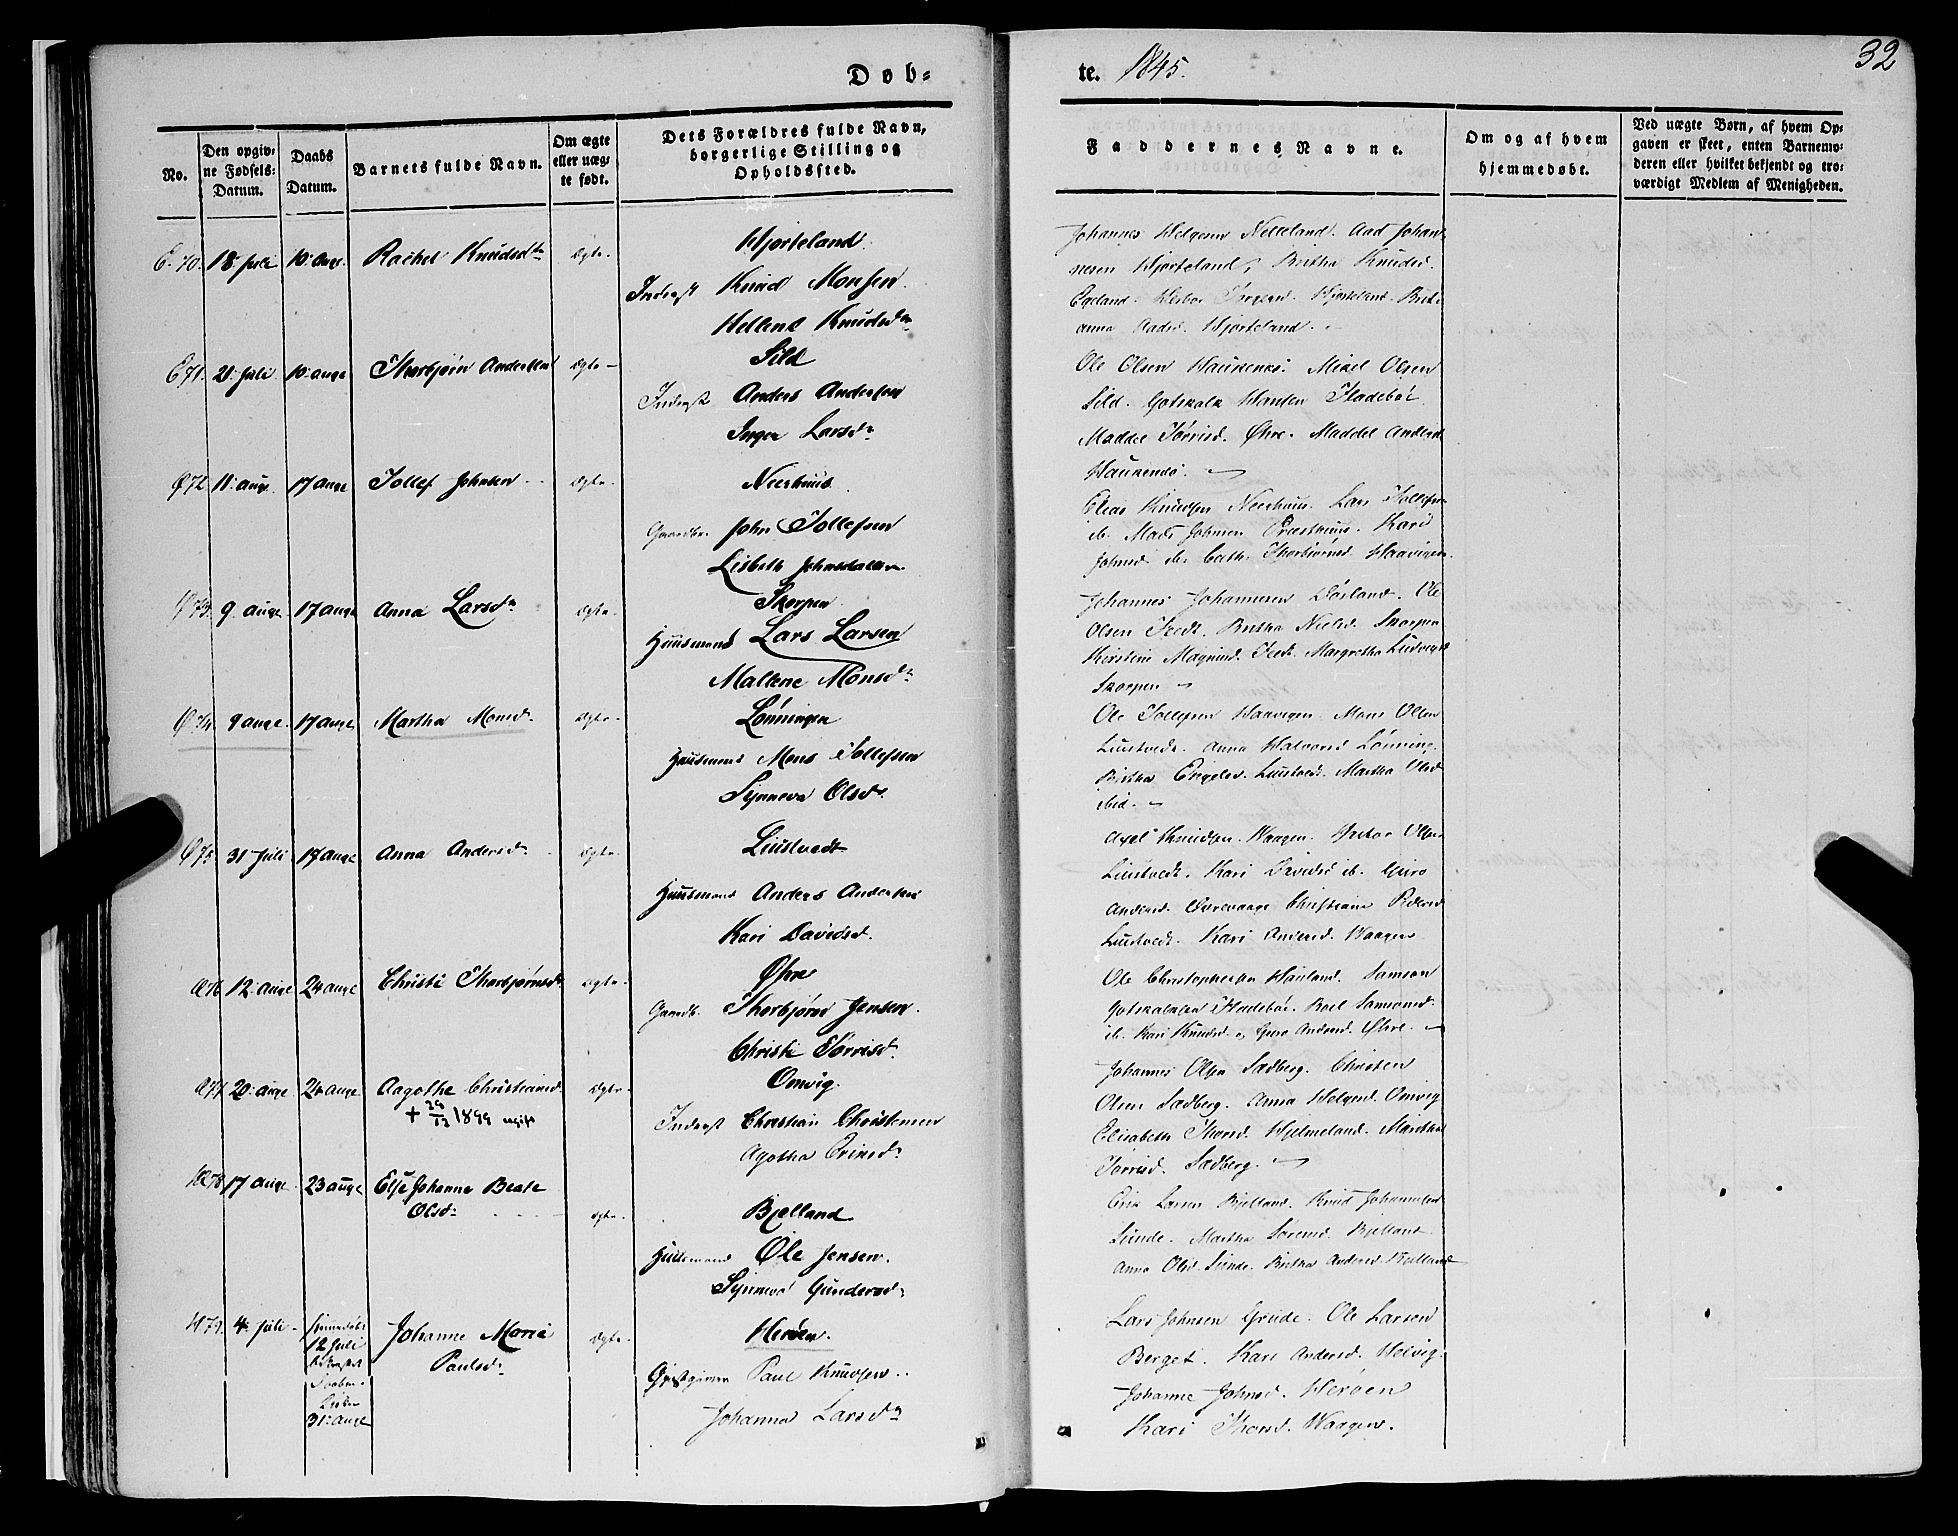 Døb-
te. 1845.
32
No.
Den opgiv-
ne Fødsels-
Datum.
Daabs
Datum.
Barnets fulde Navn.
Om ægte
eller uæg-
te født.
Dets Forældres fulde Navn,
borgerlige Stilling og
Opholdssted.
Faddernes Navne.
Om og af hvem
hjemmedøbt.
Ved uægte Børn, af hvem Op-
gaven er skeet, enten Barnemo-
deren eller hvilket bekjendt og tro-
værdigt Medlem af Menigheden.
70. 18. Juli 10. aug. Rachel Knudsdtr Ægte. Hjorteland
Inderst Knud Monsen
Hellene Knudsdtr
Johannes Helgesen Netteland. Aad Johan-
nesen Hjorteland, Britha Knudsd.
Egeland. Hjorteland.
anna Aadsd. Hjorteland.
71. 21. Juli 10. auge Thorbjørn Andersen Ægte Sild
Inderst Anders Andersen
Inger Larsdr
Ole Olsen Haukenes. Mikel Olsen
Sild. Gotskalk Hansen Fladebøe
Maddel Torrisd. Øhre. Maddel Andersd
Haukenes.
72 11. auge. 17 auge Tollef Johnsen Ægte. Neerhuus
Gaardbr. John Tollefsen
Lisbeth Johnsdatter
Elias Knudsen Neerhuus. Lars Tollefsen
ib. Mads Johnsen Præsthuus. Kari
Johnsd. ib. Cath. Thorbjørnsd. Haavigen.
73. 9. auge 17 auge Anna Larsdr Ægte. Skorpen
Huusmand Lars Larsen
Mallene Monsdr
Johannes Johannesen Døsland. Ole
Olsen Tvedt. Britha Nielsd. Skorpen
Kirstine Magnusd. Tvedt. Margretha Ludvigsd
Skorpen
74. 9 auge. 17 auge Martha Monsd. Ægte. Lønningen
Huusmand Mons Tollefsen
Synneva Olsdr.
Ole Tollefsen Haavigen. Mons Olsen
Liustvedt. Anna Halvorsd Lønning.
Britha Engelsd. Liustvedt. Martha Olsd
ibid.
75. 31 Juli 17 auge Anna Andersdr. Ægte. Liustvedt
Huusmand Anders Andersen
Kari Davidsd.
Axel Knudsen Waagen. Olsen
Liustvedt. Kari Davidsd ib. Guro
Andersd. Øvrevaage Christiane Pedersd
Liustvedt. Kari Andersd. Waagen
76 12. auge 24 auge Christi Thorbjørnsdr Ægte. Øhre
Gaardb. Thorbjørn Jensen.
Christi Torrisdr.
Ole Christophersen Hauland. Samson
Gotskalksen Fladebøe. Roel Samsonsd.
ib. Kari Knudsd. Guro Andersd. Øhre.
77. 20. auge 24 auge Aagothe Christiansd. Ægte. Omvig.
+ 29/12 1899 ugift
Inderst Christian Christensen
Agotha Brinsdr
Johannes Olsen Sædberg. Christen
Olsen Sædberg. Anna Helgesd. Omvig
Elisabeth Thorsd. Hjelmeland. Martha
Torrisd. Sædberg.
78 17 auge. 23 auge Else Johanna Beate
Olsdr. Ægte. Bjelland
Huusmand Ole Jensen.
Synneve Gundersdr
Erik Larsen Bjelland. Knud Johannesen
Sunde. Martha Sorensd. Bjelland
Anna Olsd. Sunde. Britha Andersd. Bjelland
79. 4. Juli hjemmedøbt
12 Juli
31. auge
Johanne Marie
Paulsdr. Ægte. Herøen.
Gjestgiver Paul Knudsen
Johanna Larsdr
Lars Johnsen Grude. Ole Larsen
Berget. Kari Andersd. Helvig.
Johanne Johnsd. Herøen
Kari Thorsd. Waagen.